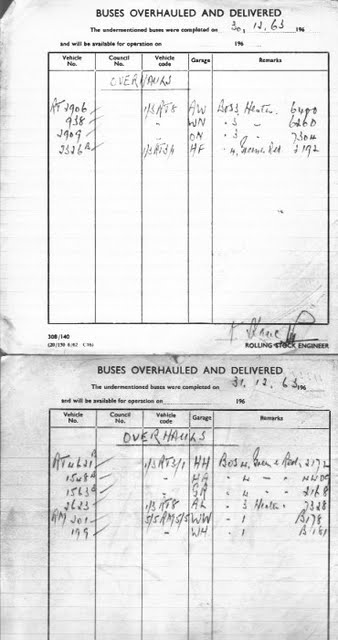 BUSES OVERHAULED AND DELIVERED
The undermentioned buses were completed on 30. 12. 63 196
and will be available for operation on 196
Vehicle No. Council No. Vehicle code Garage Remarks
OVERHAULS
RT 2906 1/3 RT8 AW Bos 3 Heater 6400
938 " WN " 3 " 6260
2909 " ON " 3 " 7304
2326 1/3 RT3/1 HF " 4, 2192
308/140
ROLLING STOCK ENGINEER
BUSES OVERHAULED AND DELIVERED
The undermentioned buses were completed on 31. 12. 63 196
and will be available for operation on 196
Vehicle No. Council No. Vehicle code Garage Remarks
OVERHAULS
RT 4621 B 1/3 RT3/1 HH Bos 4, Green & Red, 2172
1548 B " HA " 4
1563 B " GR " 4 " 2168
2623 1/3 RT8 AL " 3 Heater 7328
RM 201 5/5 RM5/5 WW " 1 B178
199 " WH " 1 B181